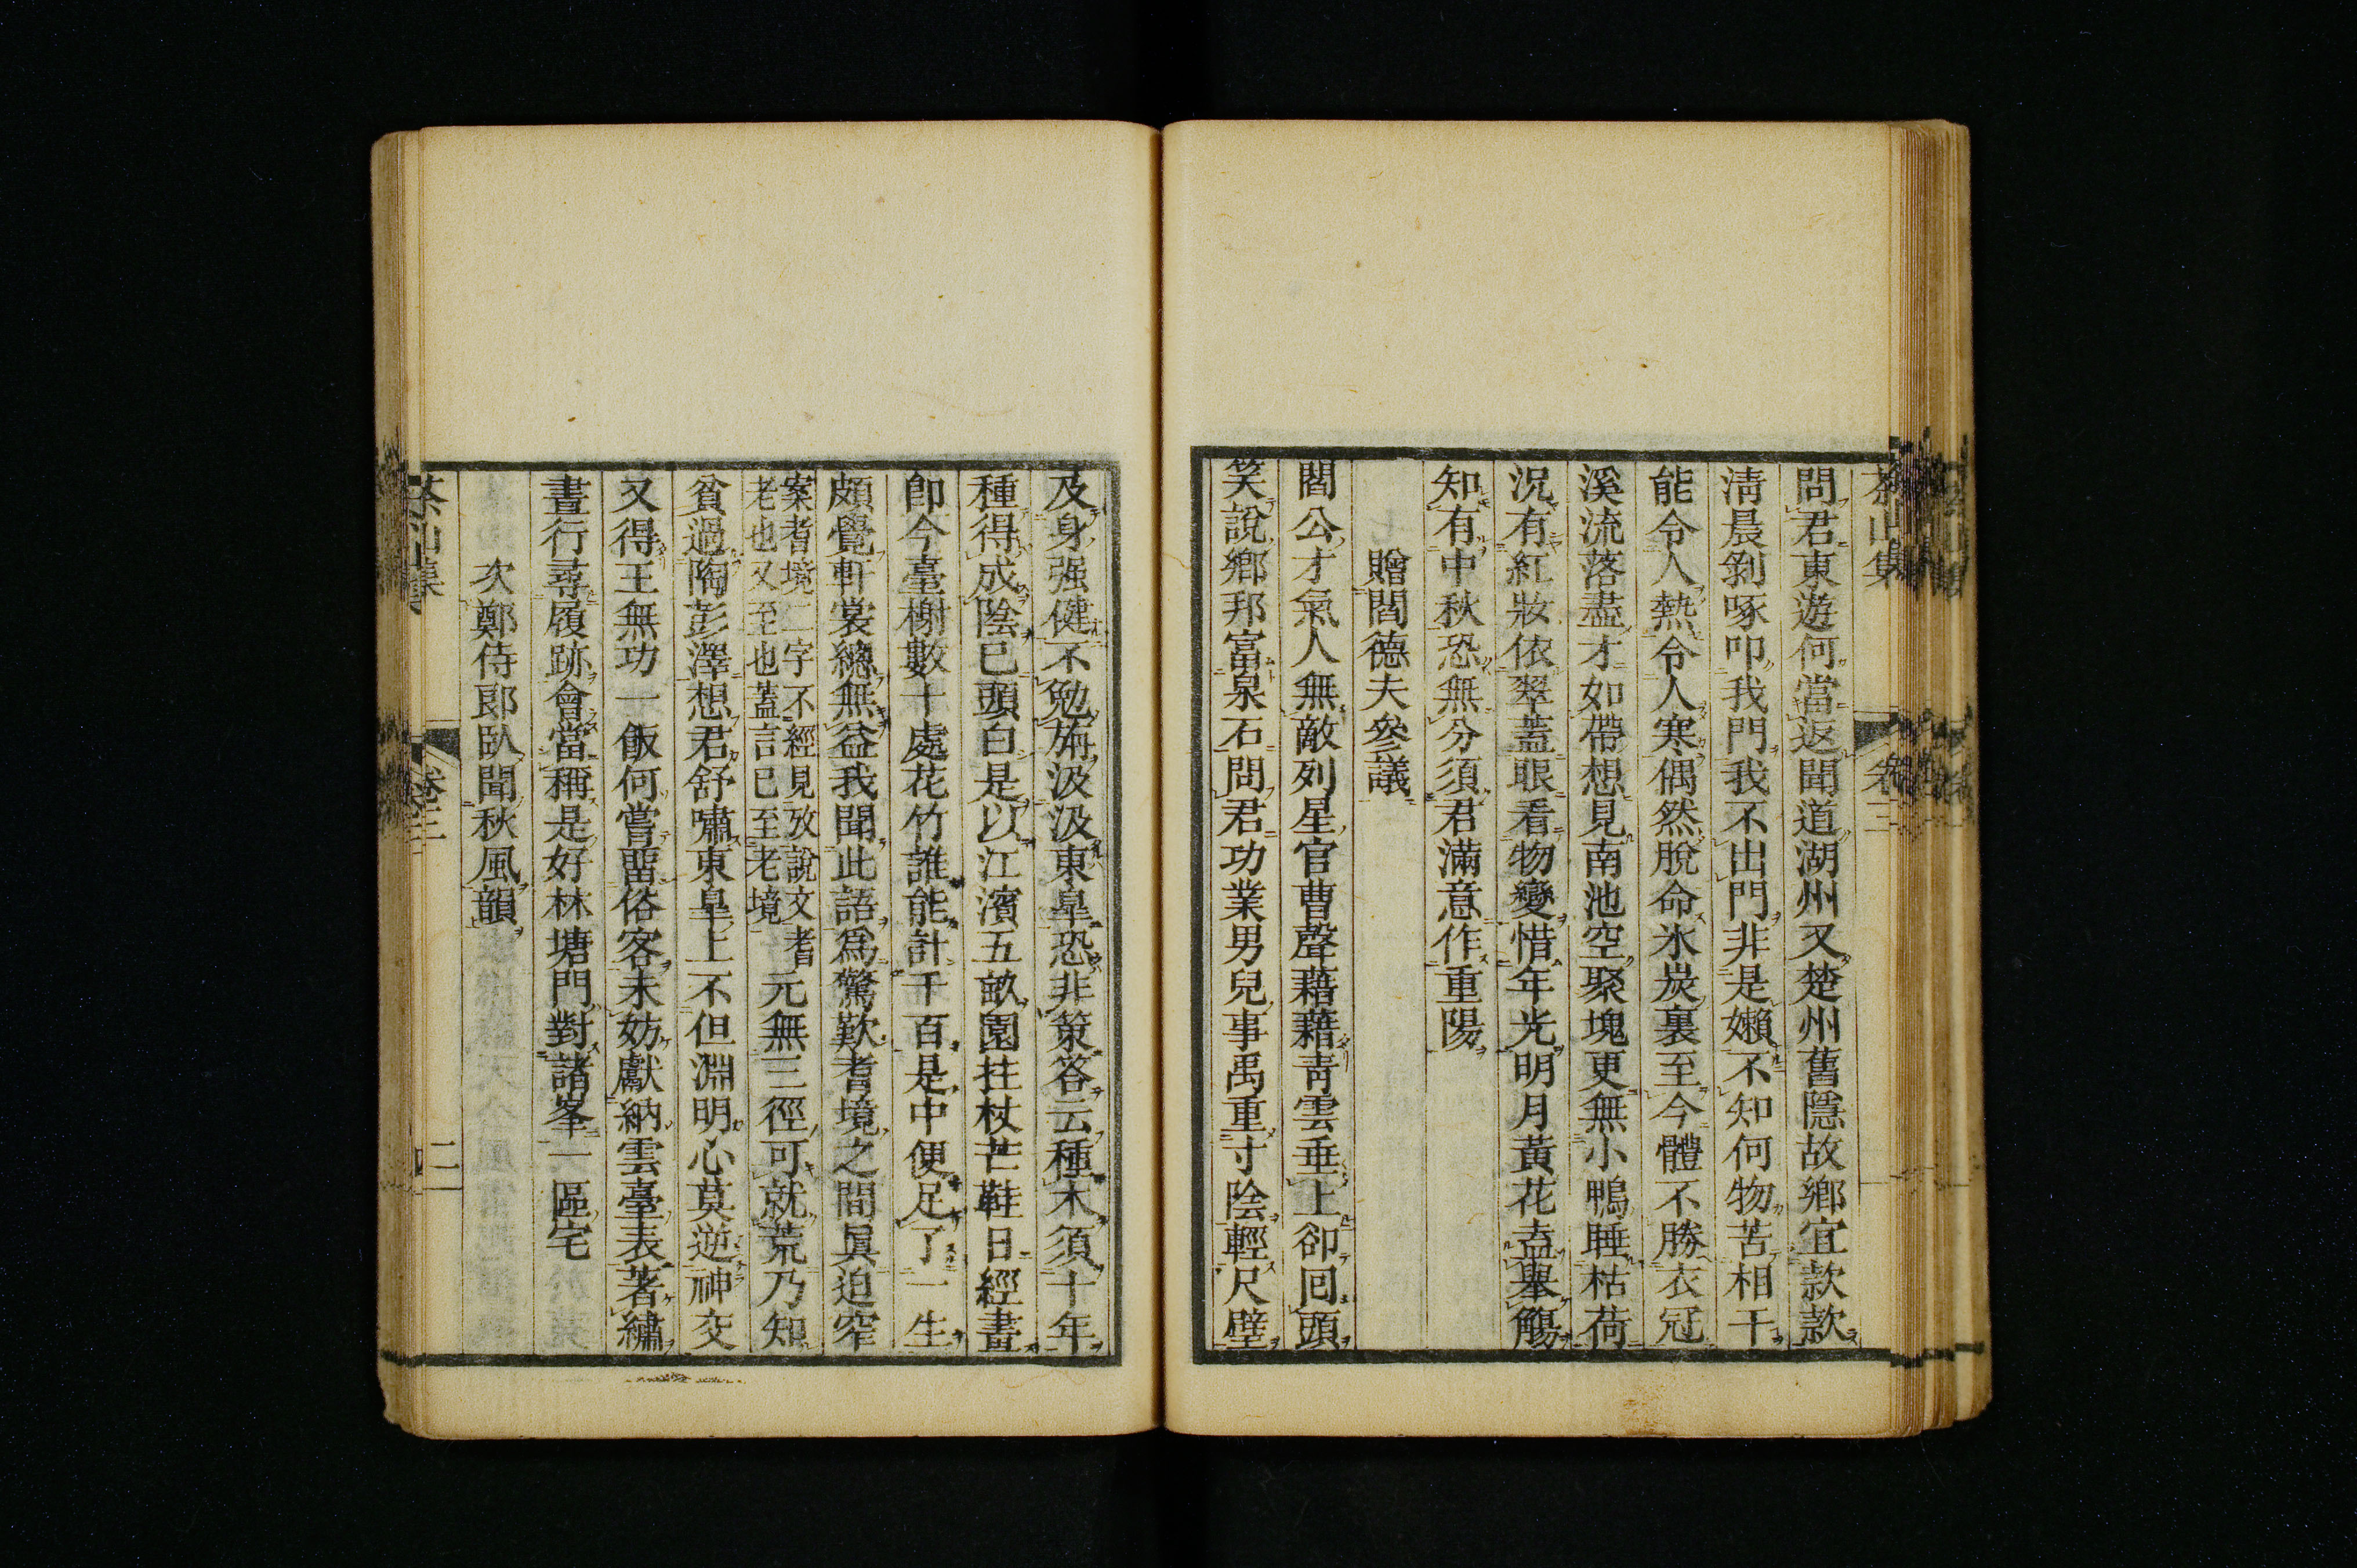 茶山集 卷三
問君東遊何當返聞道湖州又楚州舊隱故鄉宜款款
淸晨剝啄叩我門我不出門非是嬾不知何物苦相干
能令人熱令人寒偶然脫命氷炭裏至今體不勝衣冠
溪流落盡才如帶想見南池空聚塊更無小鴨睡枯荷
況有紅妝依翠蓋眼看物變惜年光明月黃花盍舉觴
知有中秋恐無分須君滿意作重陽
贈閻德夫參議
閻公才氣人無敵列星官曹聲藉藉靑雲垂上卻回頭
笑說鄉邦富泉石問君功業男兒事禹重寸陰輕尺璧
及身强健不勉旃汲汲東皐恐非策答云種木須十年
種得成陰已頭白是以江濱五畝園拄杖芒鞋日經畫
卽今臺榭數十處花竹誰能計千百是中便足了一生
頗覺軒裳總無益我聞此語爲驚歎耆境之間眞迫窄
案耆境二字不經見攷說文耆
老也又至也蓋言已至老境
元無三徑可就荒乃知
貧過陶彭澤想君舒嘯東皐上不但淵明心莫逆神交
又得王無功一飯何嘗畱俗客未妨獻納雲臺表著繡
晝行尋履跡會當稱是好林塘門對諸峯一區宅
次鄭侍郎臥聞秋風韻
茶山集 卷三 二